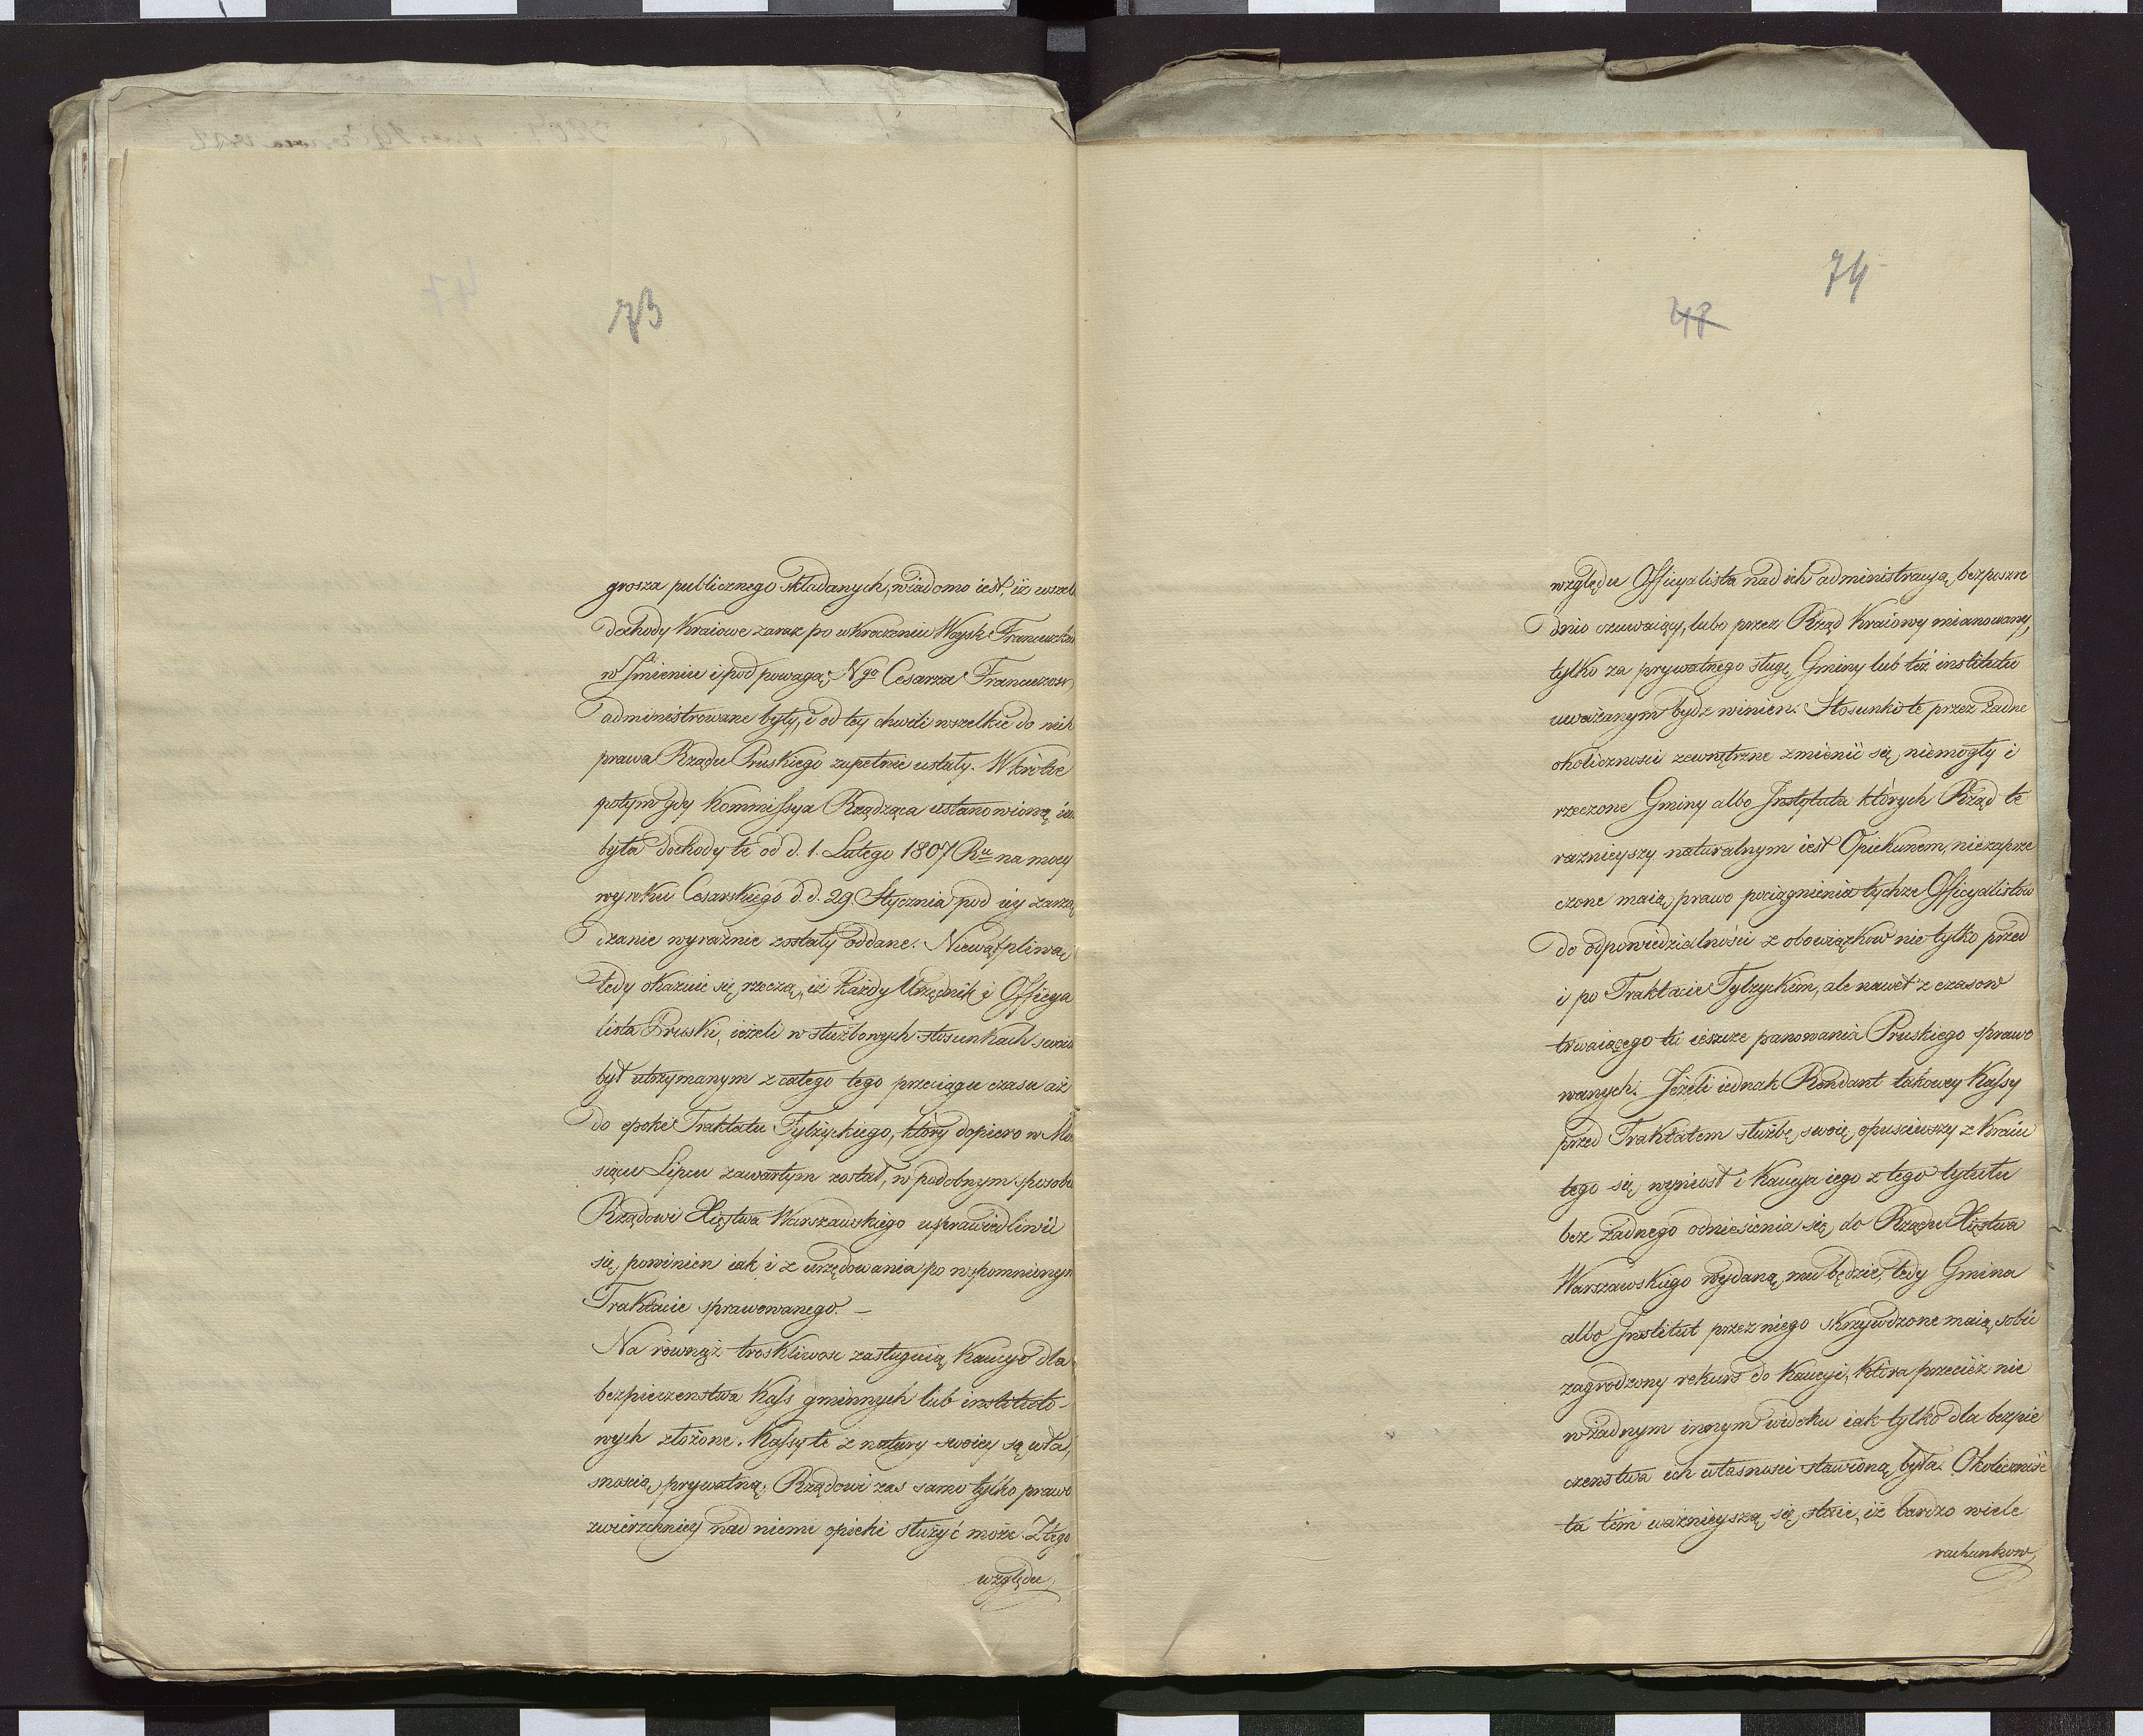 73
grosza publicznego składanych, wiadomo iest, iż wszel
dochody Kraiowe zaraz po wkroczeniu Woysk Francuzkich
w Jmieniu i pod powagą Ngo Cesarza Francuzow
administrowane były, i od tey chwili wszelkie do nich
prawa Rządu Pruskiego zupełnie ustały. Wkrótce
potym gdy Kommissya Rządząca ustanowioną
była dochody te od d. 1. Lutego 1807 Ru na mocy
wyroku Cesarskiego d. d. 29. Stycznia pod iey zarzą
dzanie wyraźnie zostały oddane. Niewątpliwą
tedy okazuie się rzeczą, iż każdy Urzędnik i Officya
lista Pruski, ieżeli w służbowych stosunkach swoich
był utrzymanym z całego tego przeciągu czasu aż
do epoki Traktatu Tylżyckiego, który dopiero w Mie
siącu Lipcu zawartym został, w podobnym sposobie
Rządowi Xięstwa Warszawskiego usprawiedliwić
się powinien iak i z urzędowania po wspomnionym
Traktacie sprawowanego. —
Na równąż troskliwosc zasługuią Kaucye dla
bezpieczenstwa Kass gminnych lub instituto-
wych złożone. Kassy te z natury swoiey są wła,
snoscią prywatną; Rządowi zas samo tylko prawo
zwierzchniey nad niemi opieki służyć może. Z tego
względu
74
48
względu Officyalista nad ich administracyą bezposre
dnio czuwaiący, lubo przez Rząd Kraiowy mianowany,
tylko za prywatnego sługę Gminy lub też institutu
uważanym bydz winien. Stosunki te przez żadne
okolicznosci zewnętrzne zmienić się niemogły i
rzeczone Gminy albo Instytuta których Rząd te
raznieyszy naturalnym iest Opiekunem, niezaprze
czone maią prawo pociągnienia tychże Officyalistów
do odpowiedzialności z obowiązkow nie tylko przed
i po Traktacie Tylżyckim, ale nawet z czasow
trwaiącego tu ieszcze panowania Pruskiego sprawo
wanych. Jeżeli iednak Rendant takowey Kassy
przed Traktatem służbę swoię opuściwszy z Kraiu
tego się wyniosł i Kaucya iego z tego tytułu
bez żadnego odniesienia się do Rządu Xięstwa
Warszawskiego wydaną mu będzie, tedy Gmina
albo Institut przez niego skrzywdzone maią sobie
zagrodzony rekurs do Kaucyi, która przecież nie
w żadnym innym widoku iak tylko dla bezpie
czenstwa ich własnosci stawioną była. Okoliczność
ta tém ważnieyszą się staie, iż bardzo wiele
rachunkow